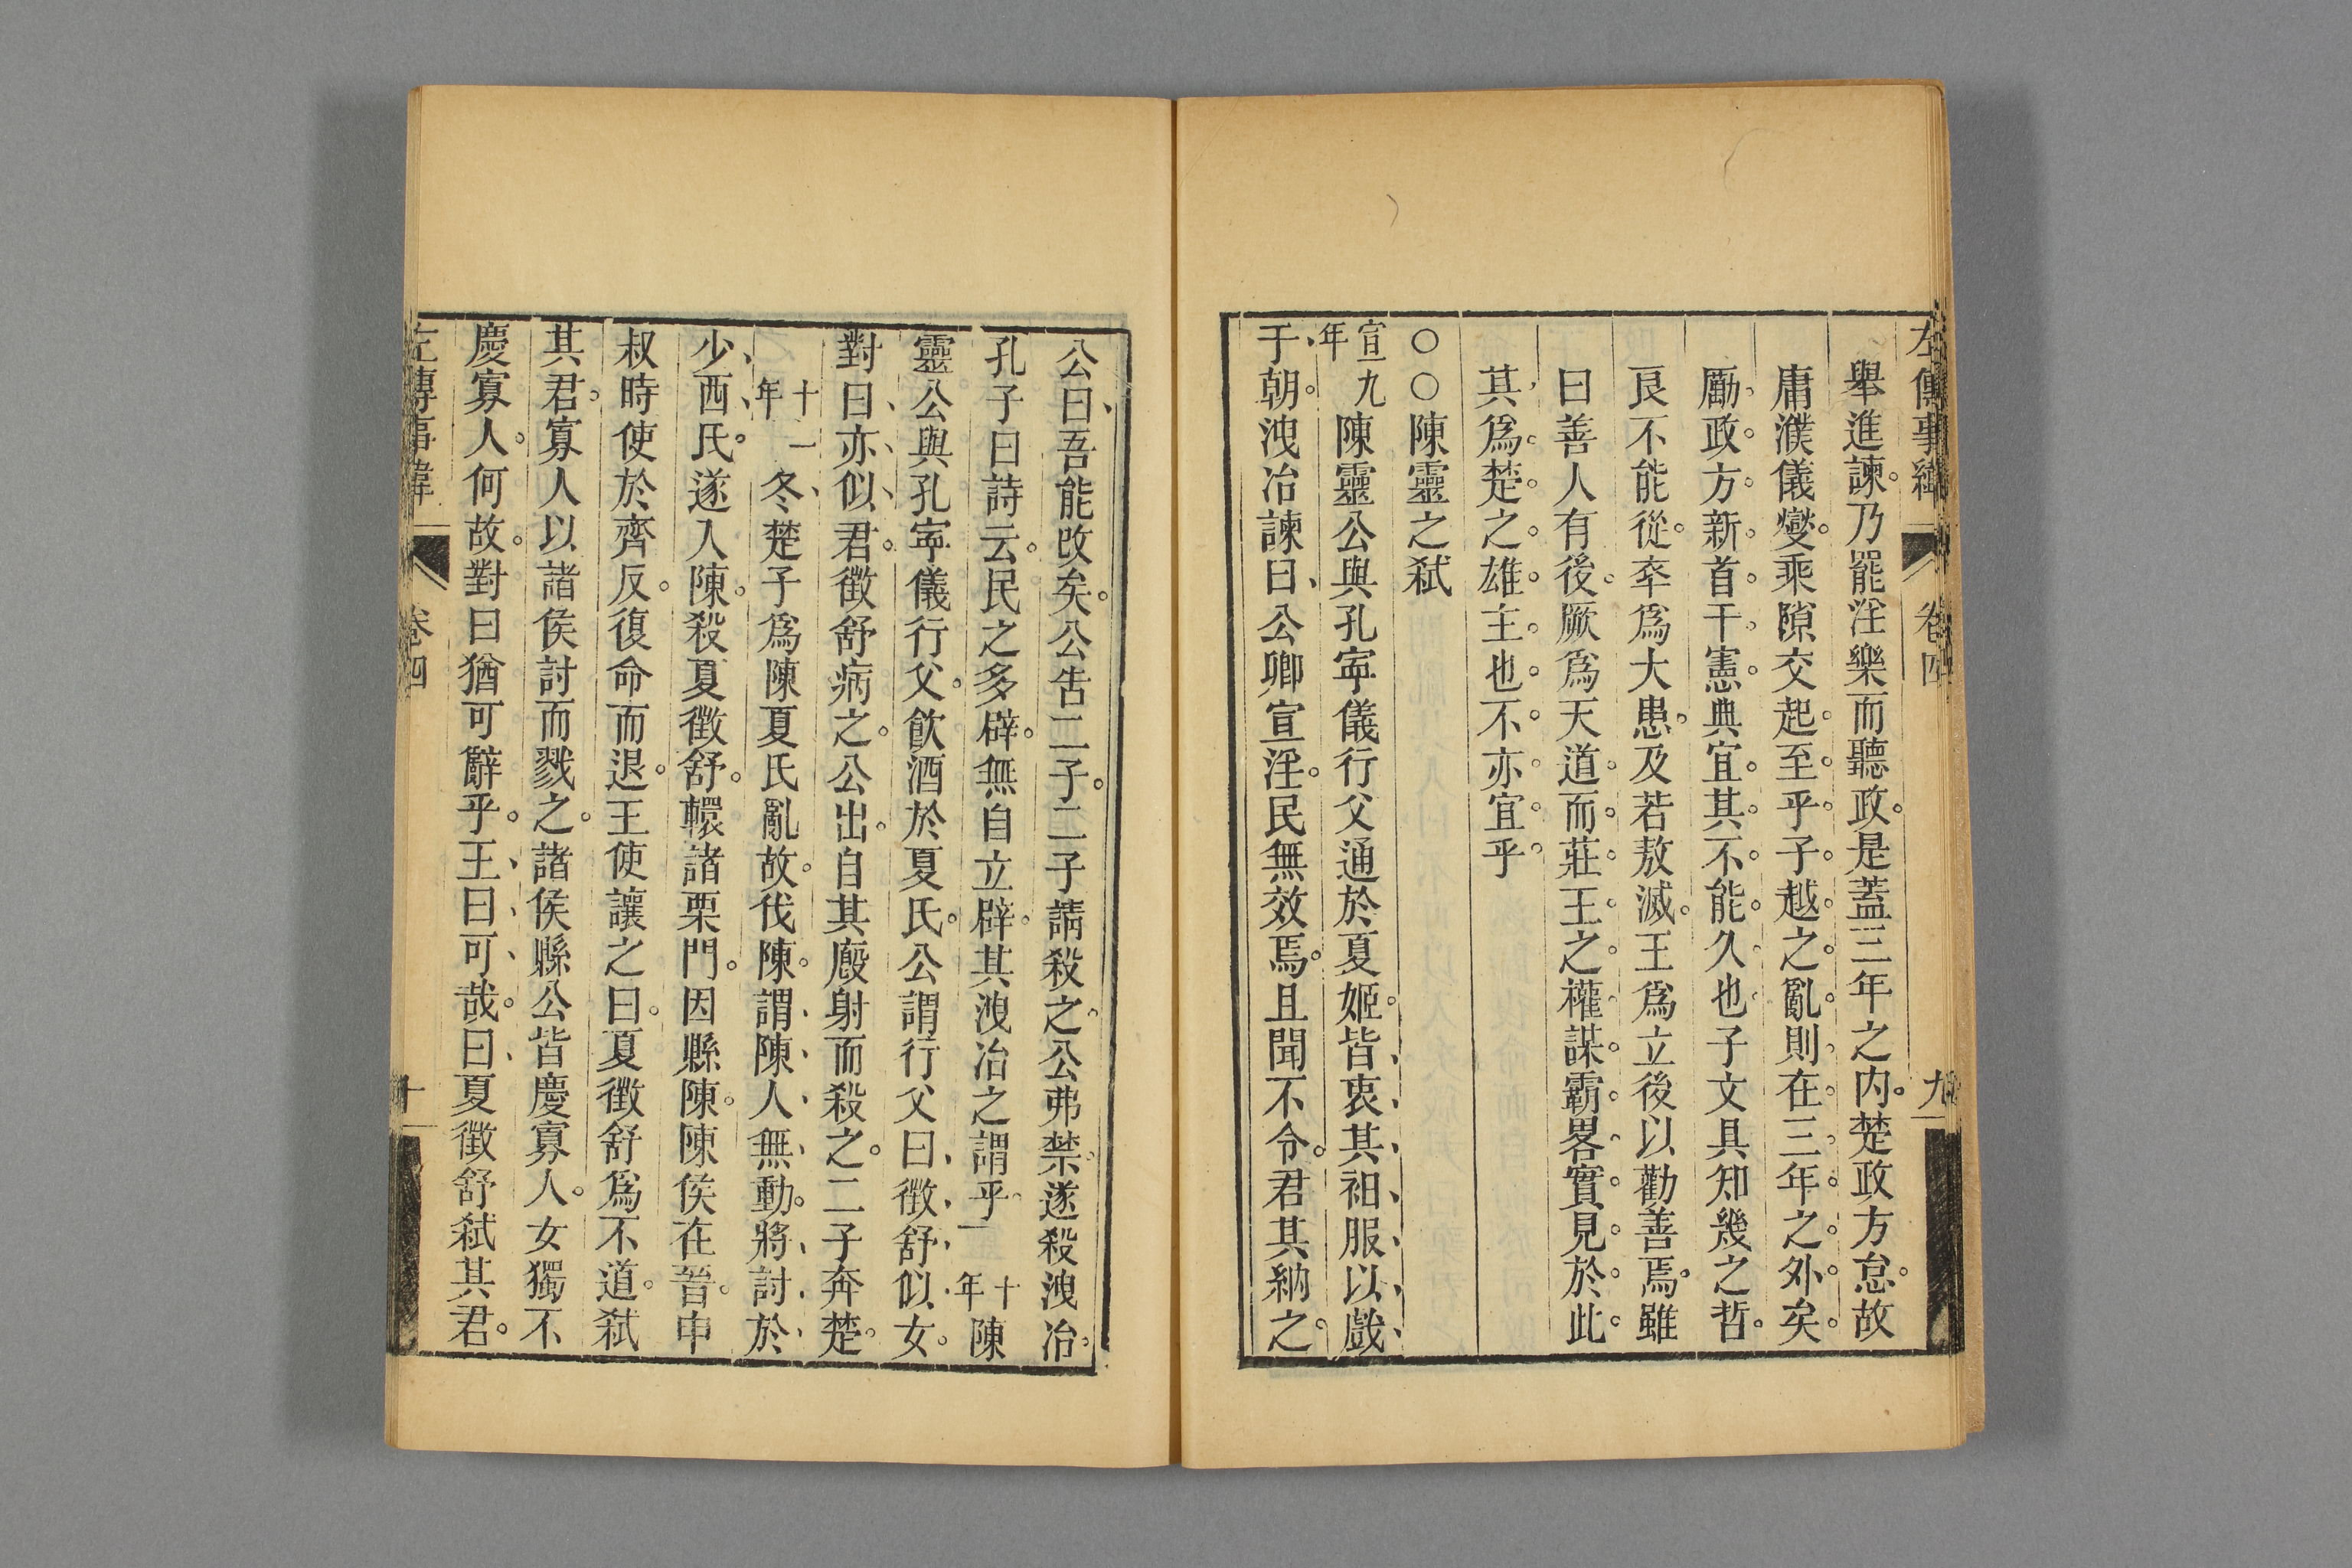 左傳事緯 卷四 九
舉進諫乃罷淫樂而聽政是蓋三年之内楚政方怠故
庸濮儀燮乘隙交起至乎子越之亂則在三年之外矣
勵政方新首干憲典宜其不能久也子文具知幾之哲
良不能從卒爲大患及若敖滅王爲立後以勸善焉雖
曰善人有後厥爲天道而莊王之權謀霸畧實見於此
其爲楚之雄主也不亦宜乎
○○陳靈之弒
宣九年陳靈公與孔寧儀行父通於夏姬皆衷其衵服以戲
于朝洩冶諫曰公卿宣淫民無效焉且聞不令君其納之
公曰吾能改矣公告二子二子請殺之公弗禁遂殺洩冶
孔子曰詩云民之多辟無自立辟其洩冶之謂乎 十年陳
靈公與孔寧儀行父飲酒於夏氏公謂行父曰徵舒似女
對曰亦似君徵舒病之公出自其廏射而殺之二子奔楚
十一年冬楚子爲陳夏氏亂故伐陳謂陳人無動將討於
少西氏遂入陳殺夏徵舒轘諸栗門因縣陳陳侯在晉申
叔時使於齊反復命而退王使讓之曰夏徵舒爲不道弒
其君寡人以諸侯討而戮之諸侯縣公皆慶寡人女獨不
慶寡人何故對曰猶可辭乎王曰可哉曰夏徵舒弒其君
左傳事緯 卷四 十